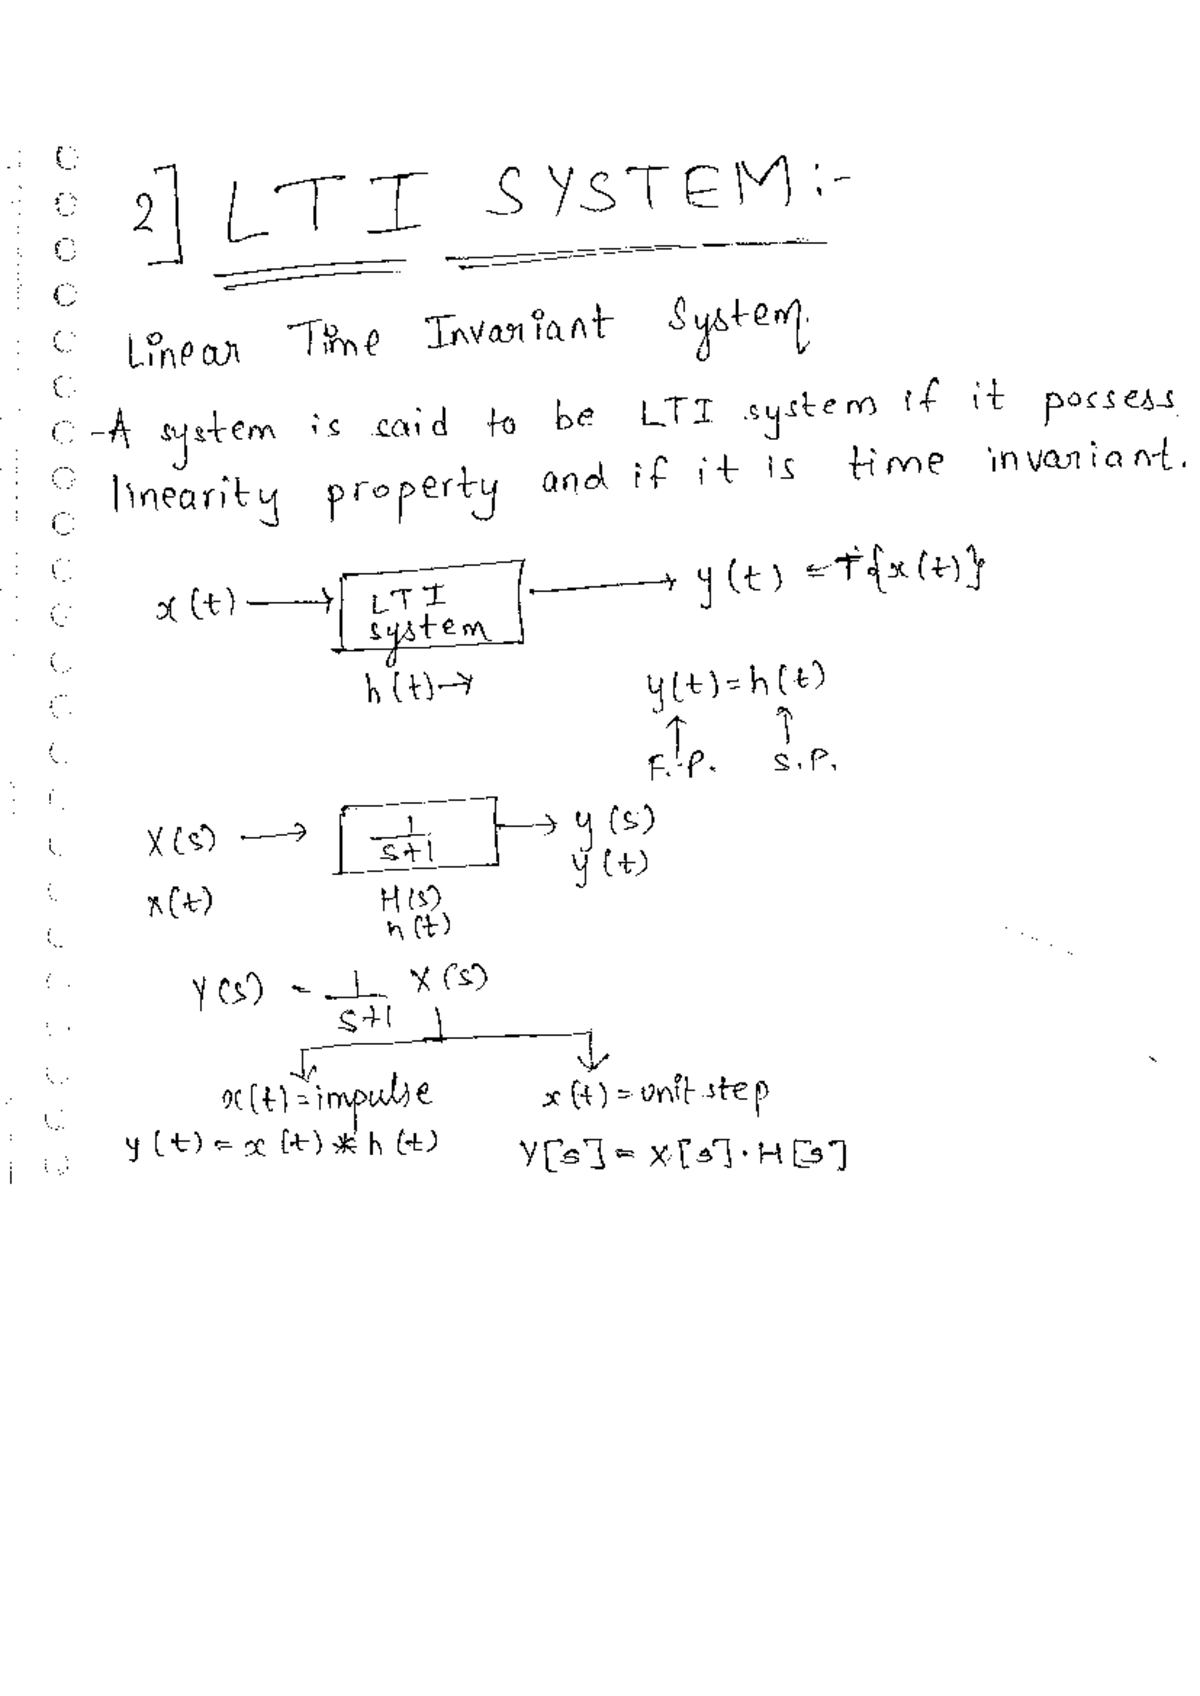 2] LTI SYSTEM :-
Linear Time Invariant System.
- A system is said to be LTI system if it possess
linearity property and if it is time invariant.
x(t) → LTI system → y(t) = T{x(t)}
h(t) →
y(t) = h(t)
↑ ↑
F.P. S.P.
X(s) → 1/(s+1) → y(s)
y(t)
x(t) H(s)
h(t)
Y(s) = 1/(s+1) X(s)
x(t) = impulse x(t) = unit step
y(t) = x(t) * h(t) Y[s] = X[s] . H[s]